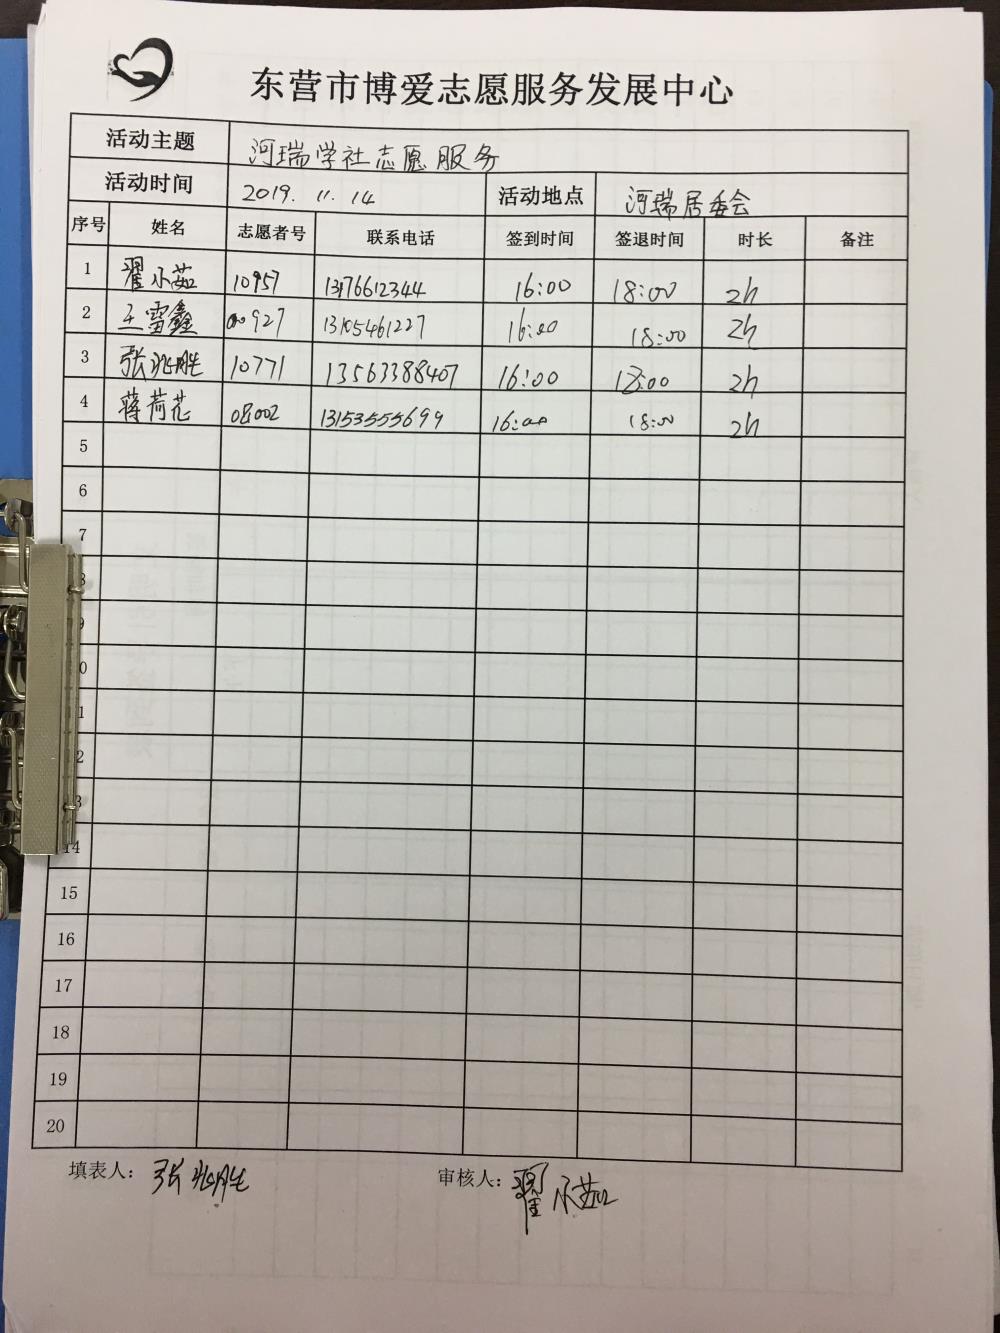 东营市博爱志愿服务发展中心
活动主题 河瑞学社志愿服务
活动时间 2019. 11. 14 活动地点 河瑞居委会
序号 姓名 志愿者号 联系电话 签到时间 签退时间 时长 备注
1 翟小茹 10957 13176612344 16:00 18:00 2h
2 王雷鑫 00927 13105461227 16:00 18:00 2h
3 张兆胜 10771 13563388407 16:00 18:00 2h
4 蒋荷花 08002 13153555699 16:00 18:00 2h
5
6
7
8
9
0
1
2
3
14
15
16
17
18
19
20
填表人: 张兆胜 审核人: 翟小茹